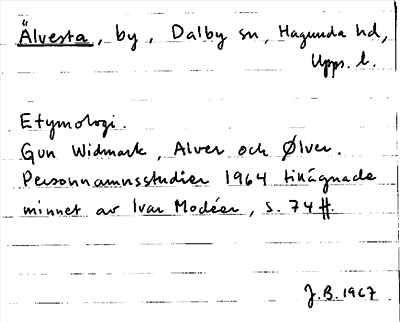 Älvesta, by, Dalby sn, Hagunda hd,
Upps. l.
Etymologi.
Gun Widmark, Alver och Ølver.
Personnamnsstudier 1964 tillägnade
minnet av Ivar Modéer, s. 74 ff.
J.B. 1967